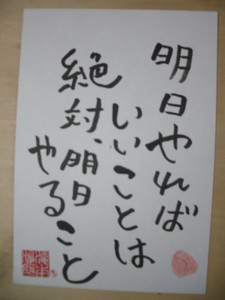 明日やれば
いいことは
絶対、明日
やること